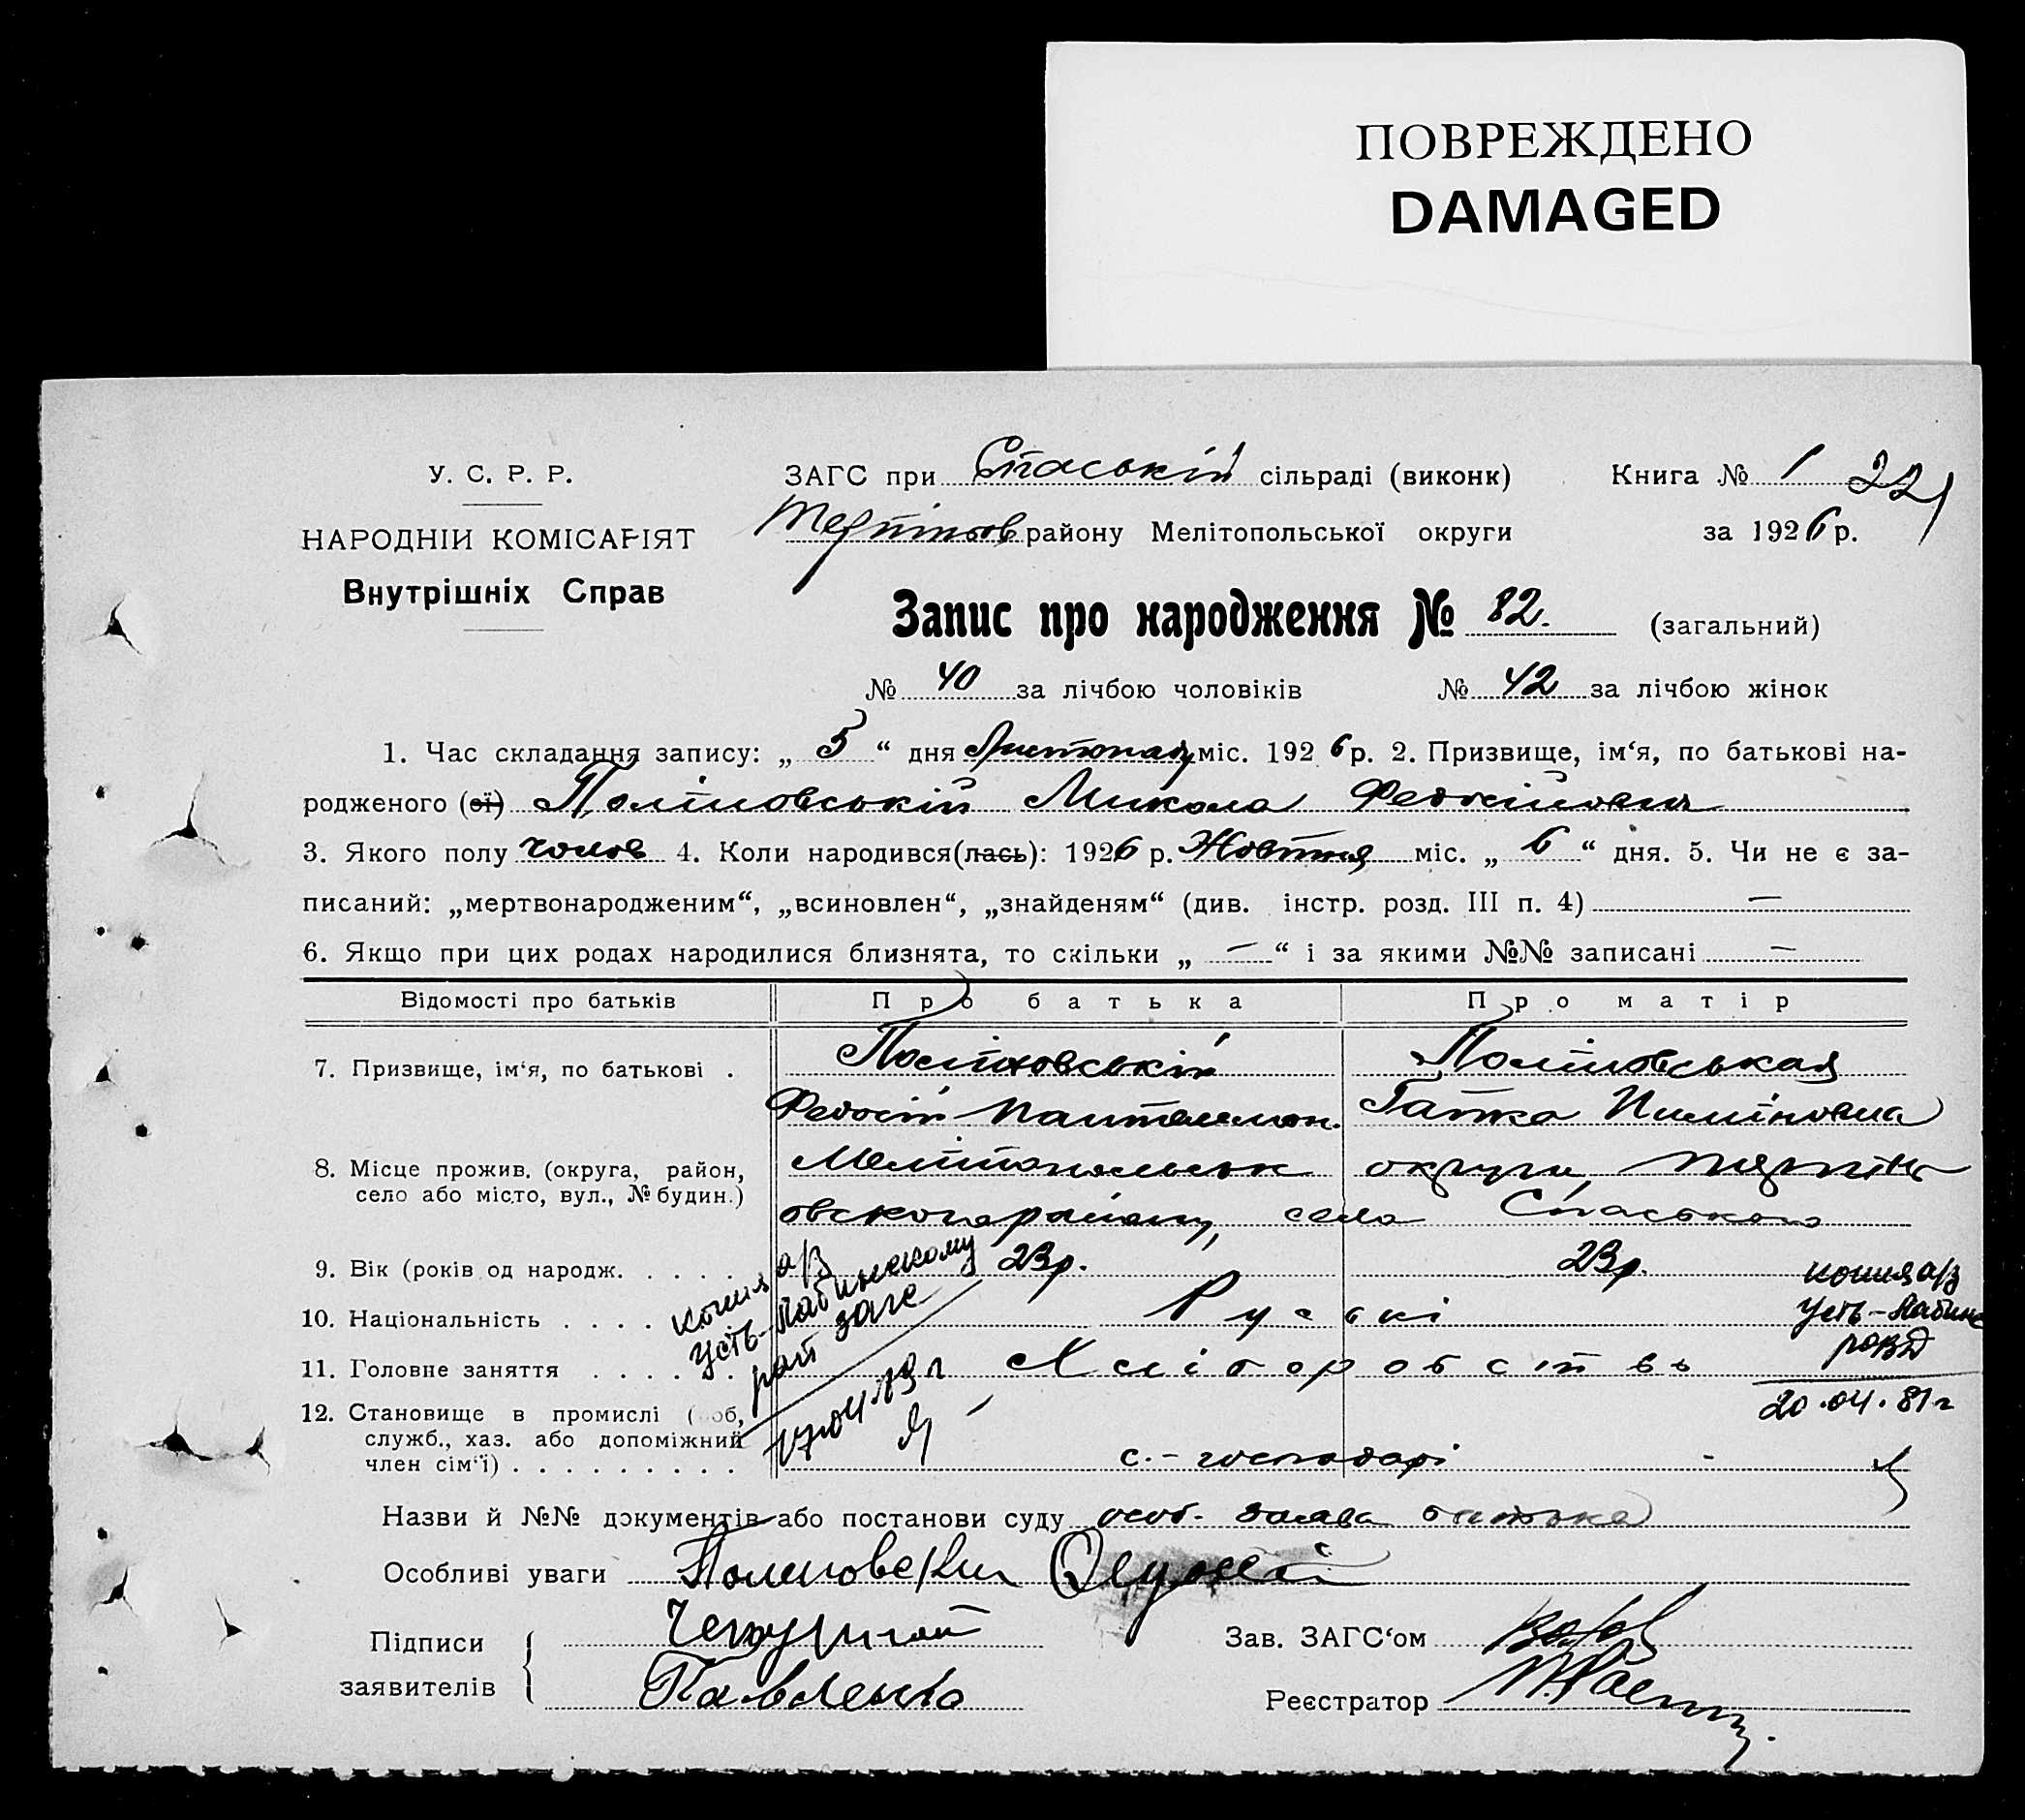 ПОВРЕЖДЕНО
DAMAGED
У. С. Р. Р.
НАРОДНІЙ КОМІСАРІЯТ
Внутрішніх Справ
ЗАГС при Спаській сільраді (виконк)
району Мелітопольської округи
Книга № 1 221
за 1926 р.
Запис про народження № 82. (загальний)
№ 40 за лічбою чоловіків № 42 за лічбою жінок
1. Час складання запису: „ 5 “ дня Листопад міс. 1926 р. 2. Призвище, ім‘я, по батькові на-
родженого (ої) Поліновській Микола Федосійович
3. Якого полу чолов 4. Коли народився(лась): 1926 р. Жовтня міс. „ 6 “ дня. 5. Чи не є за-
писаний: „мертвонародженим“, „всиновлен“, „знайденям“ (див. інстр. розд. III п. 4) —
6. Якщо при цих родах народилися близнята, то скільки „ — “ і за якими №№ записані —
Відомості про батьків Про батька Про матір
7. Призвище, ім‘я, по батькові . Поліновській Поліновськая
Федосій Пантелемон. Гапка Пилиповна
8. Місце прожив. (округа, район, Мелітопольськ округи,
село або місто, вул., № будин.) овского району, село Спаського
9. Вік (років од народж. . . . . 23 р. 23 р.
10. Національність . . . . Руські
11. Головне заняття . . . . . . Хліборобств
12. Становище в промислі ( об,
служб., хаз. або допоміжний
член сім‘ї) . . . . . . . . . с.-господарі
копия а/з
Усть-Лабинскому
рай загс
копия а/з
Усть-Лабинс
РОВД
20.04.81 г
Назви й №№ документів або постанови суду особ. заява батька
Особливі уваги
Підписи
заявителів
Павленко
Зав. ЗАГС‘ом
Реєстратор